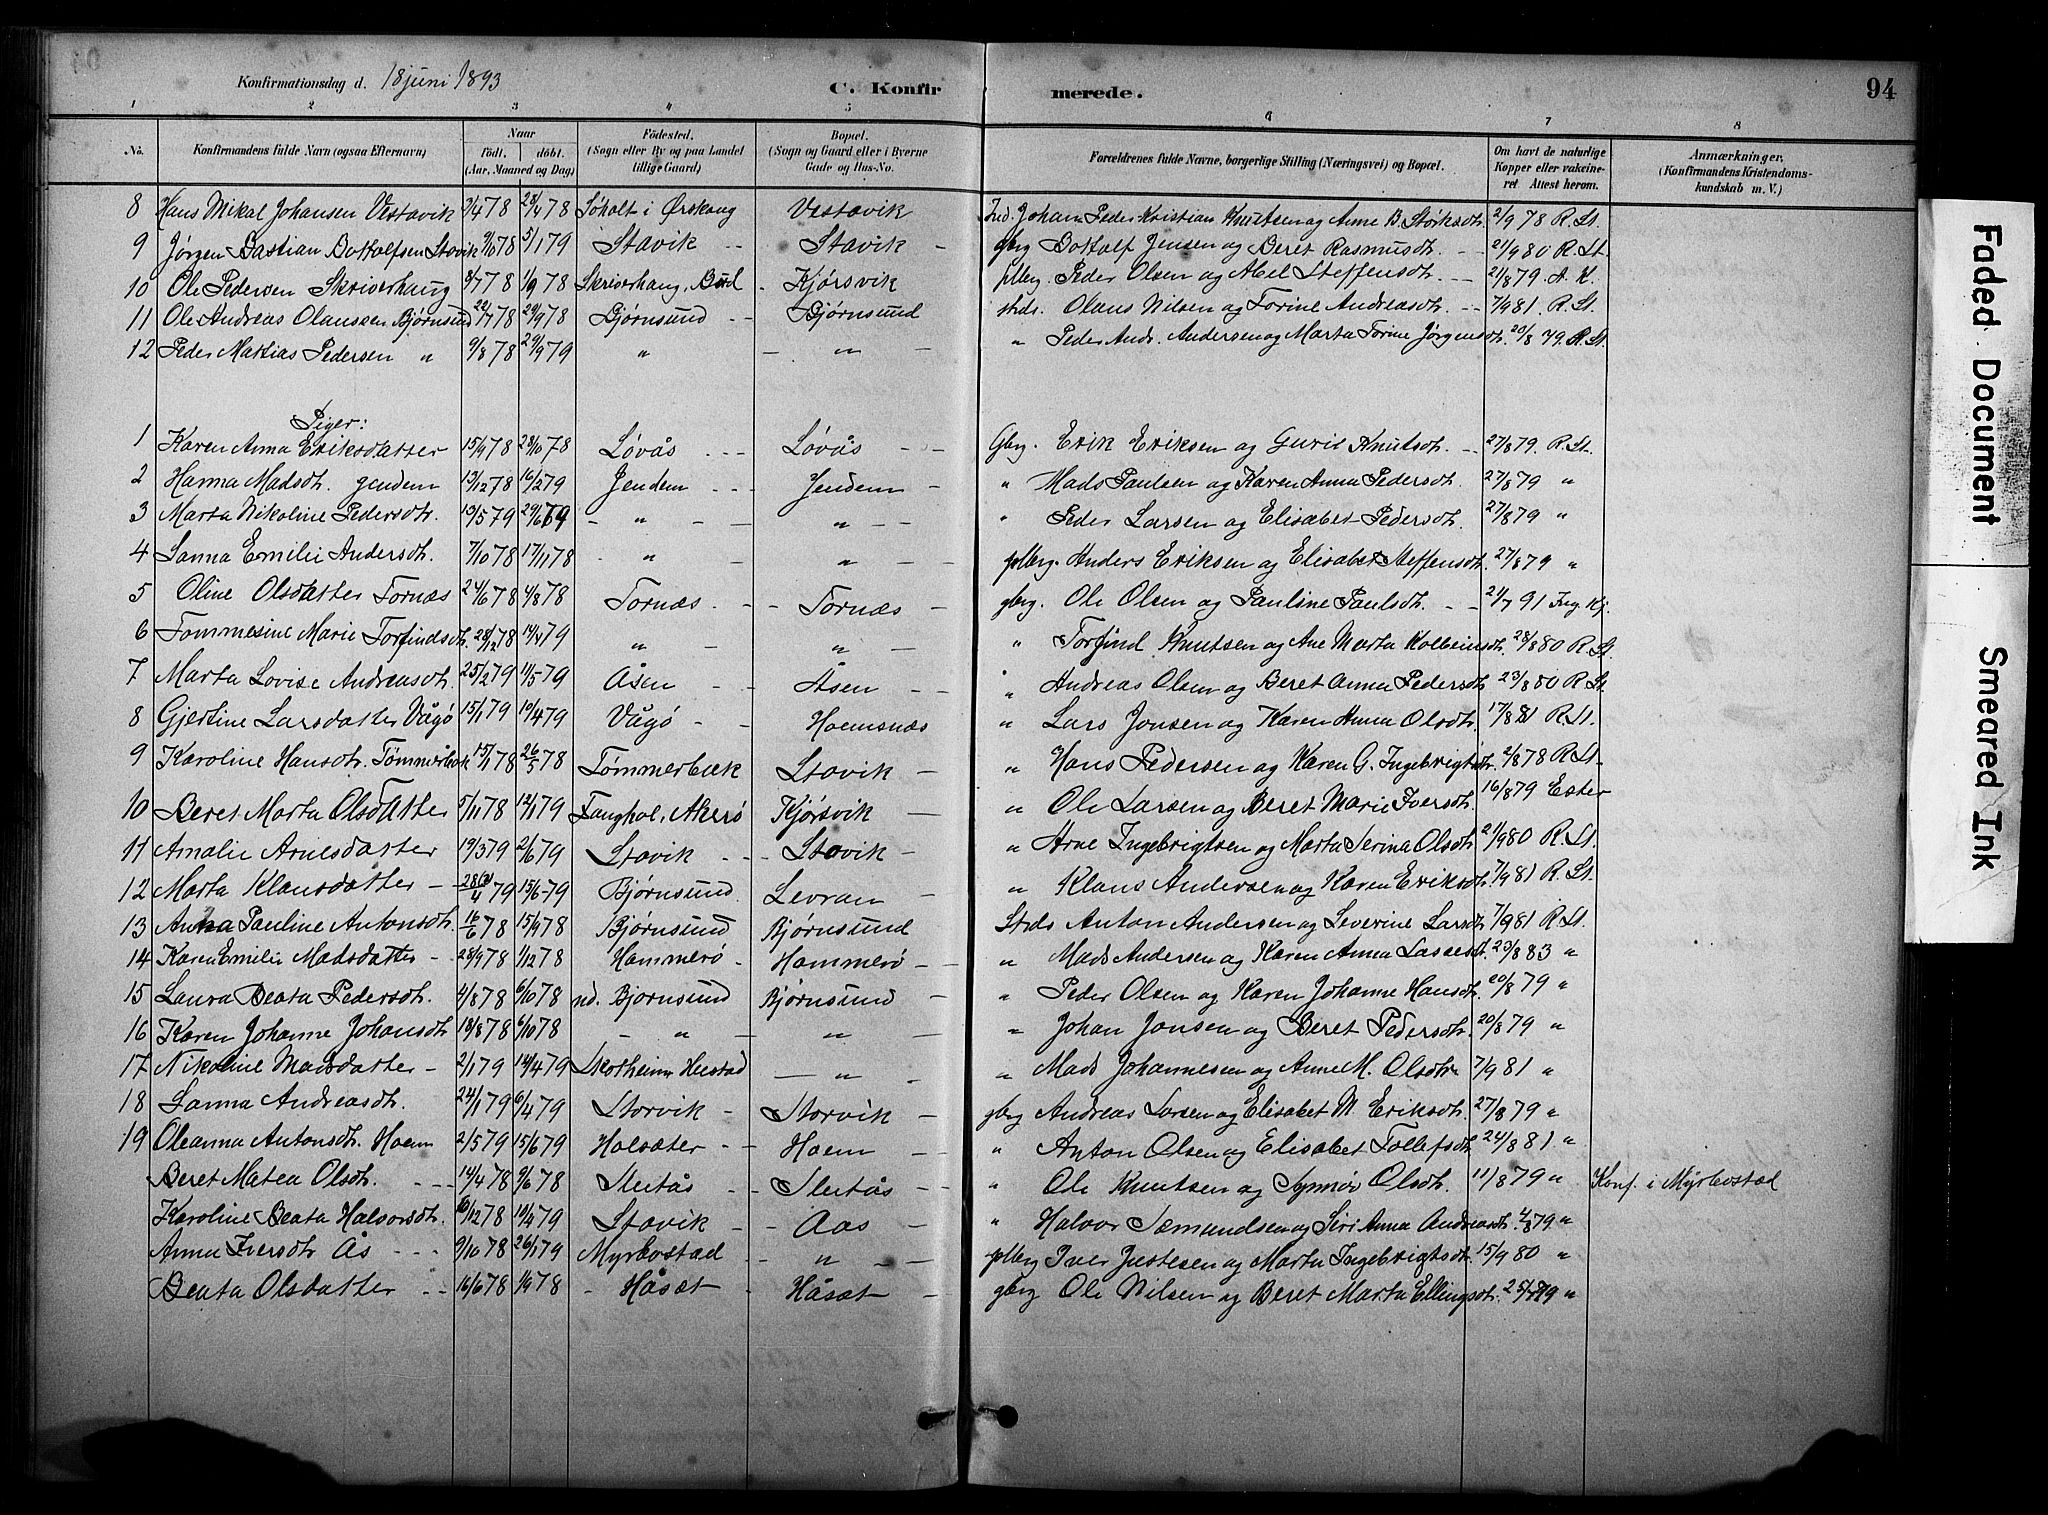 Konfirmationsdag d. 18 juni 1893 C. Konfirmerede. 94
1 2 3 " 5 6 7 8
No. Konfirmandens fulde Navn (ogsaa Efternavn) Naar födt. döbt. (Aar, Maaned og Dag) Födested. (Sogn eller By og paa Landet tillige Gaard) Bopæl. (Sogn og Gaard eller i Byerne Gade og Hus-No. Forældrenes fulde Navne, borgerlige Stilling (Næringsvei) og Bopæl. Om havt de naturlige Kopper eller vakcineret Attest herom. Anmærkninger, (Konfirmandens Kristendomskundskab m. V.)
8 Hans Mikal Johansen Vestavik 28/4 78 Söholt i Ørskoug Vestavik Ind. Johan Peder Kristian Knutsen og Anne B. 2/9 78 R. St.
9 Jörgen Bastian Bottolfsen Stavik 5/1 79 Stavik Stavik gbrg Bottolf Jensen og Beret Rasmusdt. 21/9 80 R. St.
10 Ole Pedersen Skriverhaug 1/9 78 Skriverhaug, Bud Kjørsvik plbrg. Peder Olsen og Abel Steffensdt. 21/8 79 A. K.
11 Ole Andreas Olaussen Bjørnsund 22/7 78 29/9 78 Bjørnsund Bjørnsund strds. Olaus Nilsen og Torine Andreasdt. 7/9 81 R. St.
12 Peder Mattias Pedersen " 9/8 78 29/9 79 " " " Peder Andr. Andersen og Marta Torine Jørgensdt. 20/8 79 R. St.
Piger:
1 Karen Anna Eriksdatter 15/9 78 28/10 78 Løvås Løvås Gbrg. Erik Eriksen og Guril Knutsdt. 27/8 79 R. St.
2 Hanna Madsdt. Jendem 13/12 78 16/2 79 Jendem Jendem " Mads Paulsen og Karen Anna Pedersdt. 27/8 79 "
3 Marta Nikoline Pedersdt. 13/5 79 29/6 79 " " " Peder Larsen og Elisabet Pedersdt. 27/8 79 "
4 Sanna Emilie Andersdt. 7/10 78 17/11 78 " " plbrg. Anders Eriksen og Elisabet Steffensdt. 27/8 79 "
5 Oline Olsdatter Tornæs 24/6 78 4/8 78 Tornæs Tornæs gbrg. Ole Olsen og Pauline Paulsdt. 24/7 91 Ing. Kj.
6 Tommesine Marie Torfindsdt. 28/12 78 14/4 79 " " " Torfind Knutsen og Ane Marta Kolbeinsdt. 28/8 80 R. St.
7 Marta Lovise Andreasdt. 25/2 79 11/5 79 Åsen Åsen " Andreas Olsen og Beret Anna Pedersdt. 23/8 80 R. St.
8 Gjertine Larsdatter Vågø 15/1 79 19/4 79 Vågø Hoemsnæs " Lars Jonsen og Karen Anna Olsdt. 17/8 81 R. St.
9 Karoline Hansdt. Tømmerbæk 15/1 78 26/5 78 Tømmerbæk Stavik " Hans Pedersen og Karen G. Ingebrigtsdt. 2/8 78 R. St.
10 Beret Marta Olsdatter 5/11 78 12/1 79 Akerø Kjørsvik " Ole Larsen og Beret Marie Iversdt. 16/8 79 Ester
11 Amalie Arnesdatter 19/3 79 2/6 79 Stavik Stavik " Arne Ingebrigtsen og Marta Serina Olsdt. 21/9 80 R. St.
12 Marta Klausdatter 79 15/6 79 Bjørnsund. Levran " Klaus Andersen og Karen Eriksdt. 7/9 81 R. St.
13 Anna Pauline Antonsdt. 16/6 78 15/9 78 Bjørnsund Bjørnsund Strds Anton Andersen og Severine Larsdt. 7/9 81 R. St.
14 Karen Emilie Madsdatter 28/9 78 1/12 78 Hammerø Hammerø " Mads Andersen og Karen Anna Lassesdt. 23/8 83 "
15 Laura Beata Pedersdt. 4/8 78 6/10 78 nd. Bjørnsund Bjørnsund " Peder Olsen og Karen Johanne Hansdt. 20/8 79 "
16 Karen Johanne Johansdt. 13/8 78 6/10 78 " " " Johan Jonsen og Beret Pedersdt. 20/8 79 "
17 Nikoline Madsdatter 2/1 79 14/4 79 Skotheim Hustad " " Mads Johannesen og Anne M. Olsdtr 7/9 81 "
18 Sanna Andreasdt. 24/1 79 6/4 79 Storvik Storvik gbrg Andreas Larsen og Elisabet M. Eriksdt. 27/8 79 "
19 Oleanna Antonsdt. Hoem 2/5 79 15/6 79 Holsæter Hoem " Anton Olsen og Elisabet Tollefsdt. 24/8 81 "
Beret Matea Olsdt. 14/4 78 9/6 78 Slutås Slutås " Ole Knutsen og Synnøv Olsdt. 11/8 79 " Konf. i Myrbostad
Karoline Beata Halvorsdt. 19/4 79 Stavik Aas " Halvor Sæmundsen og Siri Anna Andreasdt. 4/8 79 "
Anna Iversdt. Ås 9/10 78 26/1 79 Myrbostad " plbrg Iver Justesen og Marta Ingebrigtsdt. 15/9 80 "
Beata Olsdatter 16/6 78 1/9 78 Håsæt Håsæt gbrg Ole Nilsen og Beret Marta Ellingsdt. 79 "
Faded Document
Smeared Ink